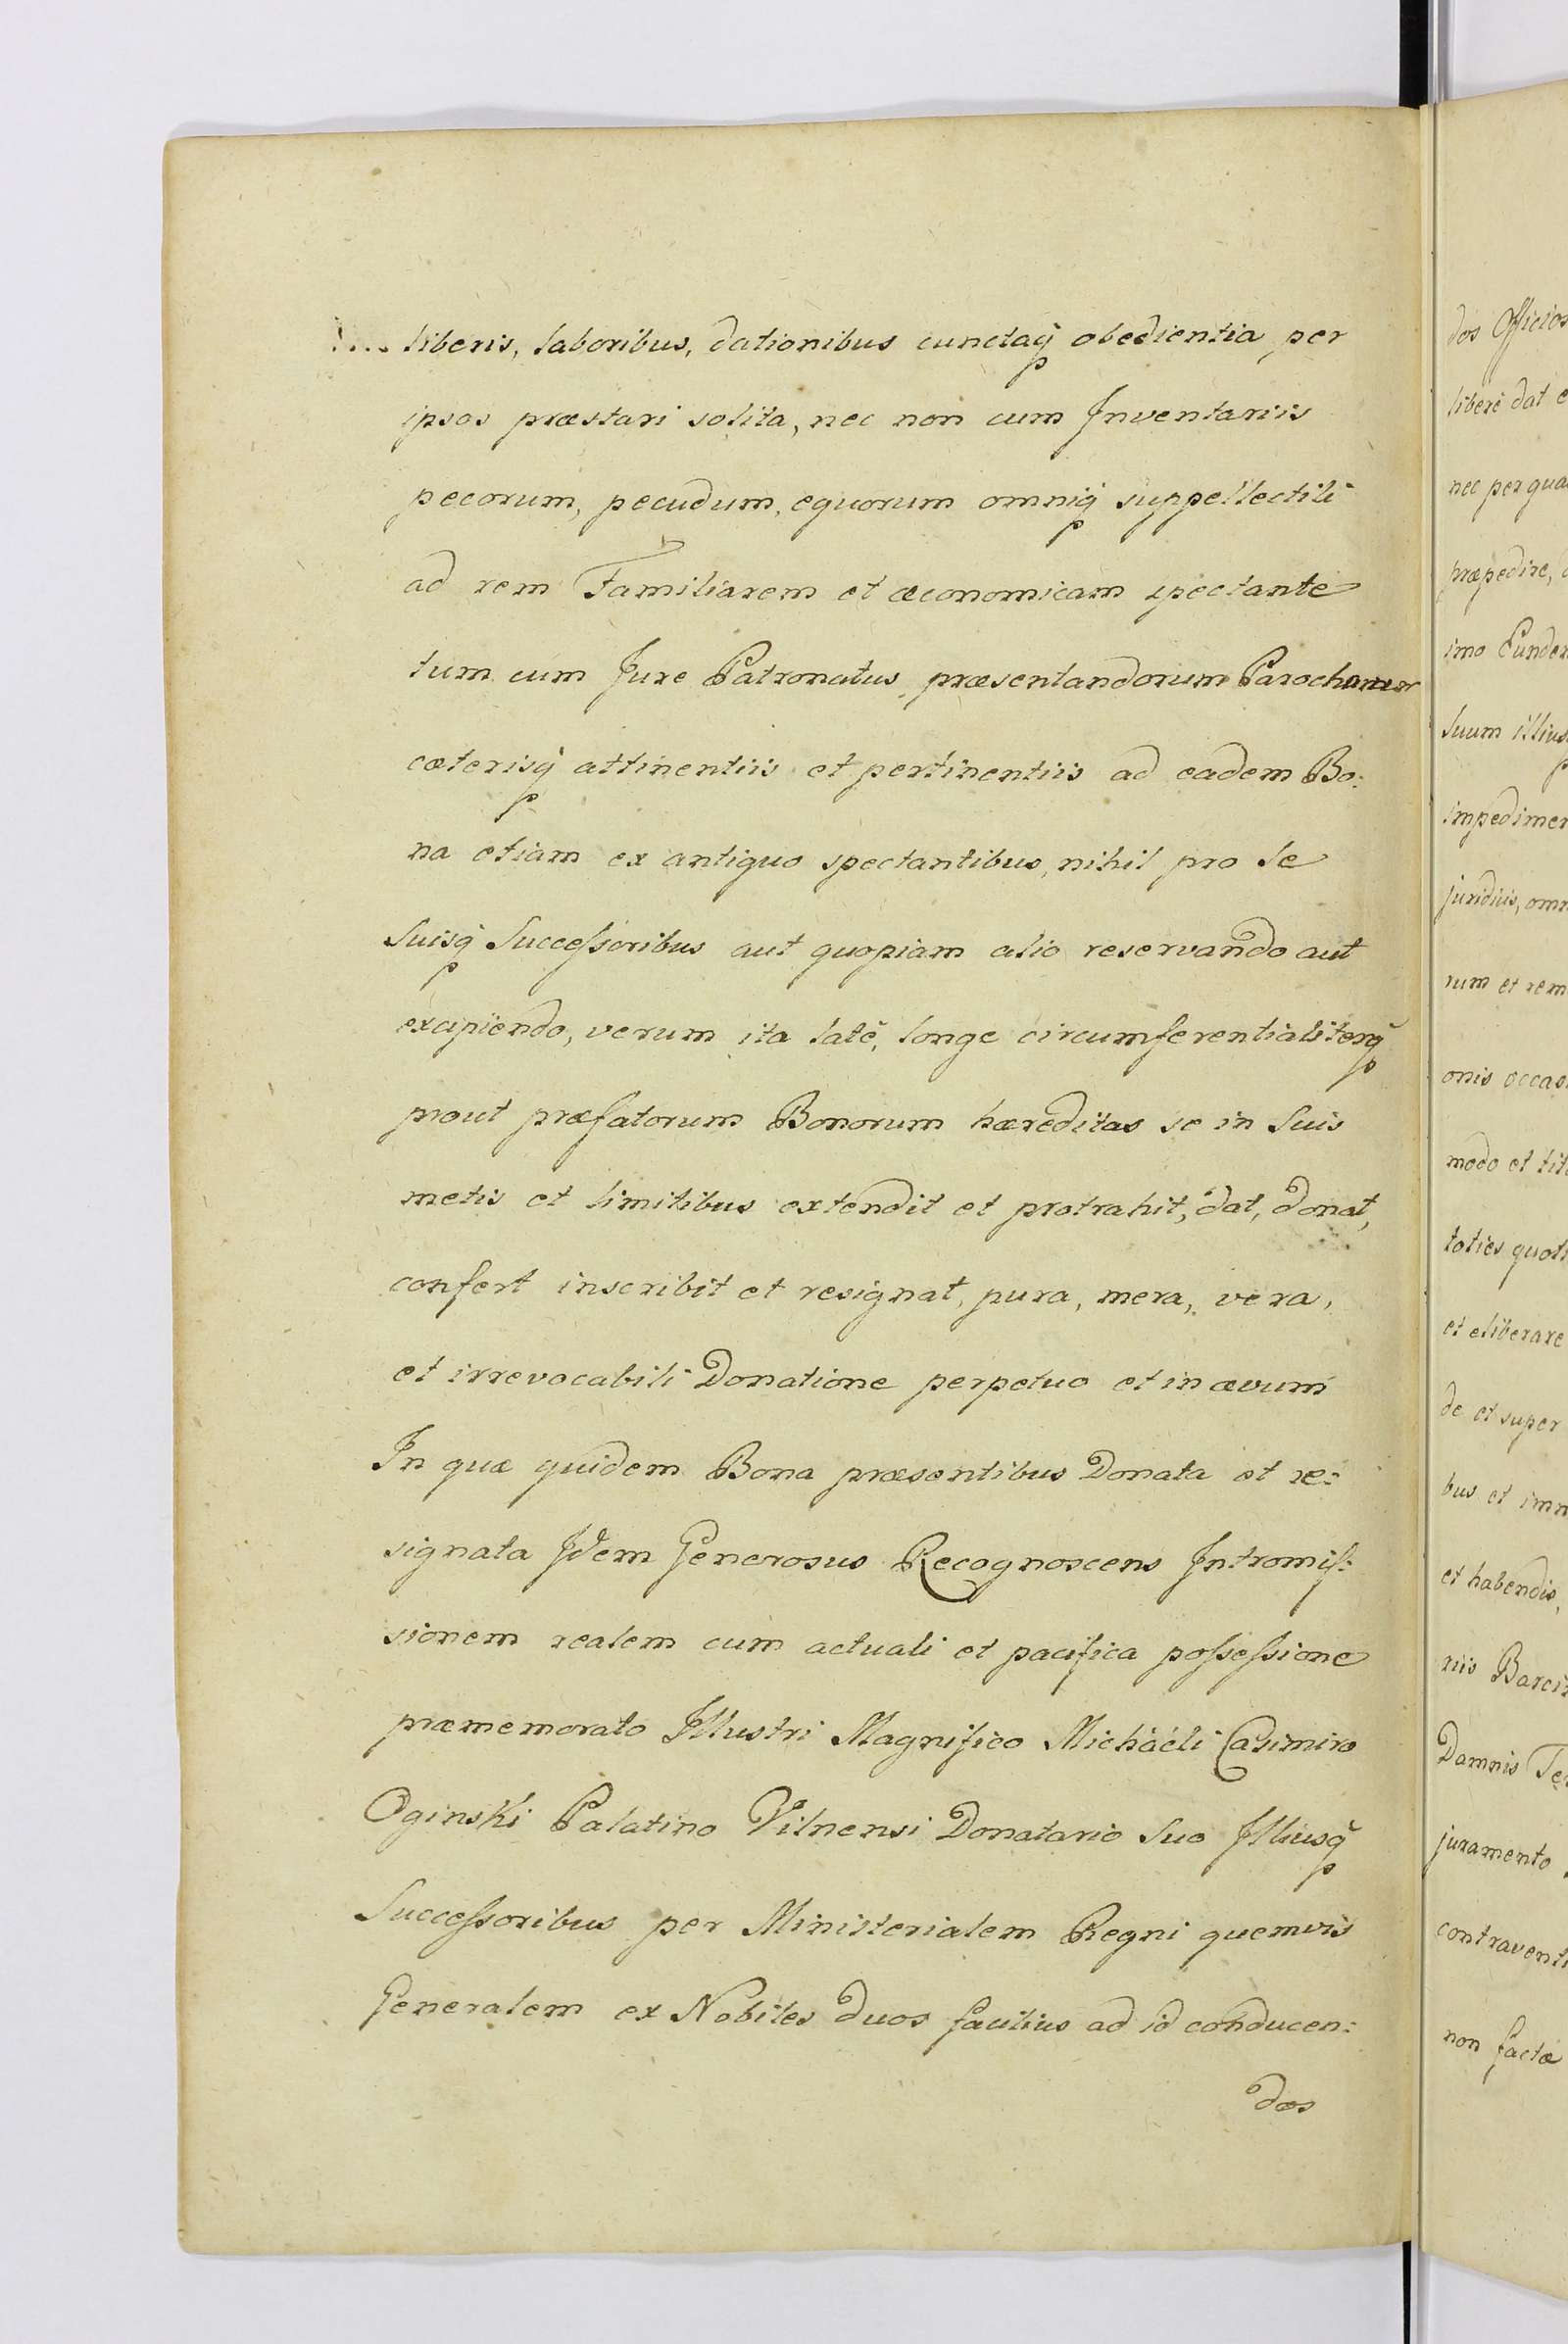 liberis, laboribus, dationibus cunctaq̃ obedientia per
ipsos præstari solita, nec non cum Inventariis
pecorum, pecudum, equorum omniq̃ suppellectili
ad rem Familiarem et œconomicam spectante
tum cum Jure Patronatus præsentandorum Parochorum
cæterisq̃ attinentiis et pertinentiis ad eadem Bo:
na etiam ex antiquo spectantibus, nihil pro se
suisq̃ Successoribus aut quopiam alio reservando aut
excipiendo, verum ita latè, longe circumferentialiterq̃
prout præfatorum Bonorum hæreditas se in suis
metis et limitibus extendit et protrahit, dat, donat,
confert inscribit et resignat, pura, mera, vera,
et irrevocabili Donatione perpetuo et in ævum
In quæ quidem Bona præsentibus Donata et re:
signata Idem Generosus Recognoscens Intromis:
sionem realem cum actuali et pacifica possessione
præmemorato Illustri Magnifico Michaéli Casimiro
Oginski Palatino Vilnensi Donatario suo Illiusq̃
Successoribus per Ministerialem Regni quemvis
Generalem ex Nobiles duos facilius ad id conducen:
dos
dos Officios
liberè dat e
nec per qua
præpedire,
imo Eunder
suum illius
impedimen
juridiis, omn
rum et rem
onis occas
modo et tit
toties quoti
et eliberare
de et super
bus et imn
et habendis,
riis Barcin
Damnis Te
juramento
contraventi
non factæ